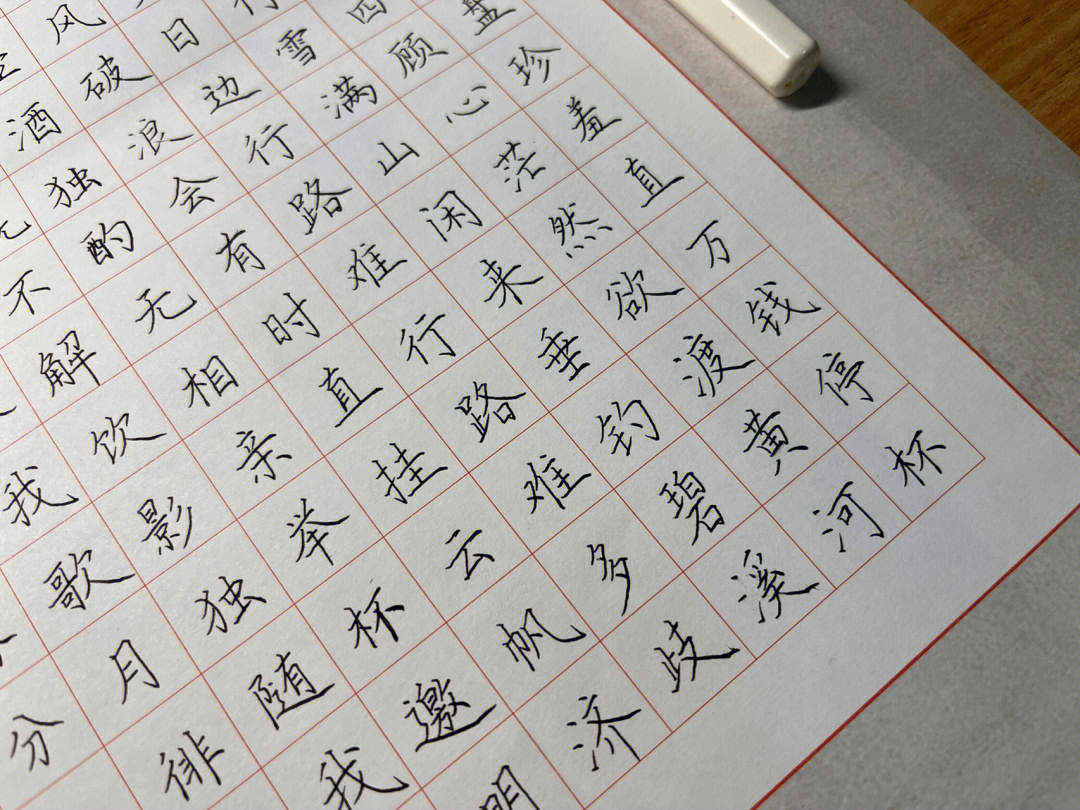 盘珍羞直万钱停杯
四顾心茫然欲渡黄河
行雪满山闲来垂钓碧溪
日边行路难行路难多歧
风破浪会有时直挂云帆济
酒独酌无相亲举杯邀明
不解饮影独随我
我歌月徘
分